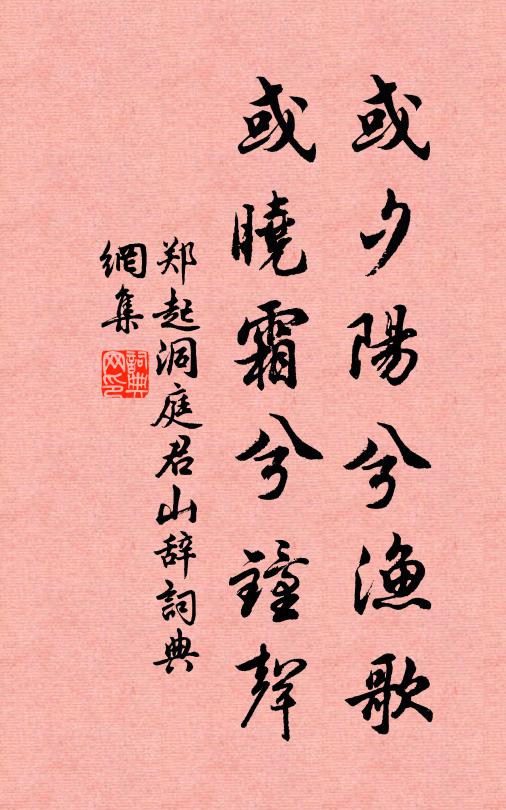 或夕陽兮漁歌
或曉霜兮鐘聲
郑起洞庭君山辞詞典
網集
詞典
网印